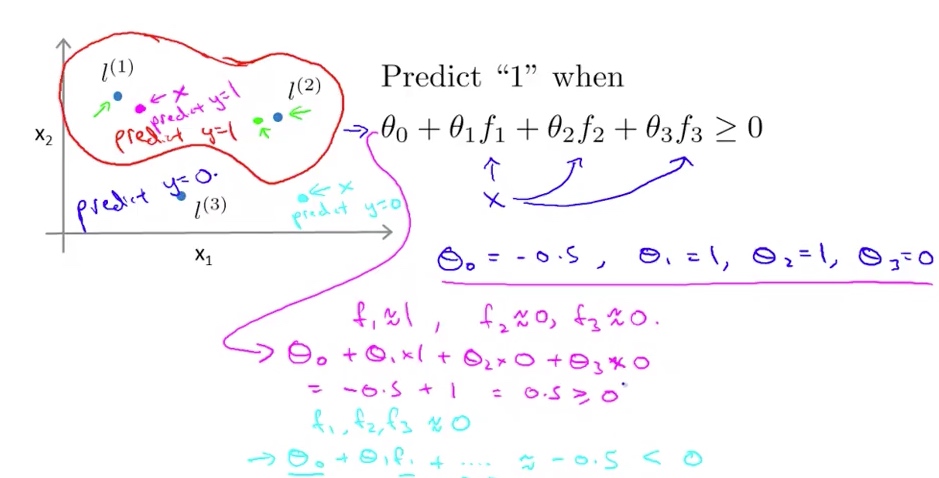 l⁽¹⁾
← x
predict y=1
l⁽²⁾
predict y=1
x₂
predict y=0.
l⁽³⁾
← x
predict y=0
x₁
Predict “1” when
→ θ₀ + θ₁f₁ + θ₂f₂ + θ₃f₃ ≥ 0
x
θ₀ = -0.5 , θ₁ = 1, θ₂ = 1, θ₃ = 0
f₁ ≈ 1 , f₂ ≈ 0, f₃ ≈ 0.
θ₀ + θ₁ × 1 + θ₂ × 0 + θ₃ × 0
= -0.5 + 1 = 0.5 ≥ 0
f₁, f₂, f₃ ≈ 0
→ θ₀ + θ₁f₁ + .... ≈ -0.5 < 0